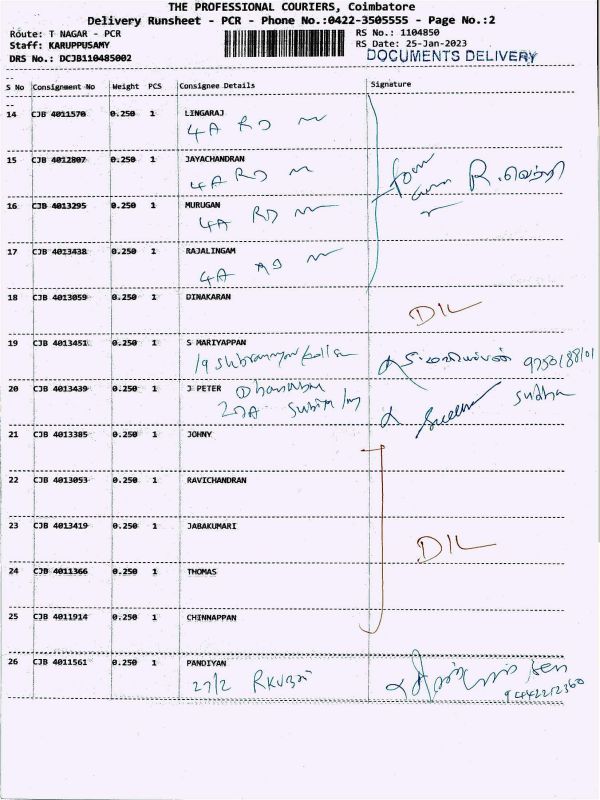 THE PROFESSIONAL COURIERS, Coimbatore
Delivery Runsheet - PCR - Phone No.:0422-3505555 - Page No.:2
Route: T NAGAR - PCR
Staff: KARUPPUSAMY
DRS No.: DCJB110485002
RS No.: 1104850
RS Date: 25-Jan-2023
DOCUMENTS DELIVERY
S No Consignment No Weight PCS Consignee Details Signature
14 CJB 4011570 0.250 1 LINGARAJ
4A RD
15 CJB 4012807 0.250 1 JAYACHANDRAN
4A RD
R. வெற்றி
16 CJB 4013295 0.250 1 MURUGAN
4A RD
17 CJB 4013438 0.250 1 RAJALINGAM
4A RD
18 CJB 4013059 0.250 1 DINAKARAN
D/L
19 CJB 4013451 0.250 1 S MARIYAPPAN
20 CJB 4013439 0.250 1 J PETER
27A
Sudha
21 CJB 4013385 0.250 1 JOHNY
22 CJB 4013053 0.250 1 RAVICHANDRAN
23 CJB 4013419 0.250 1 JABAKUMARI
D/L
24 CJB 4011366 0.250 1 THOMAS
25 CJB 4011914 0.250 1 CHINNAPPAN
26 CJB 4011561 0.250 1 PANDIYAN
27/2